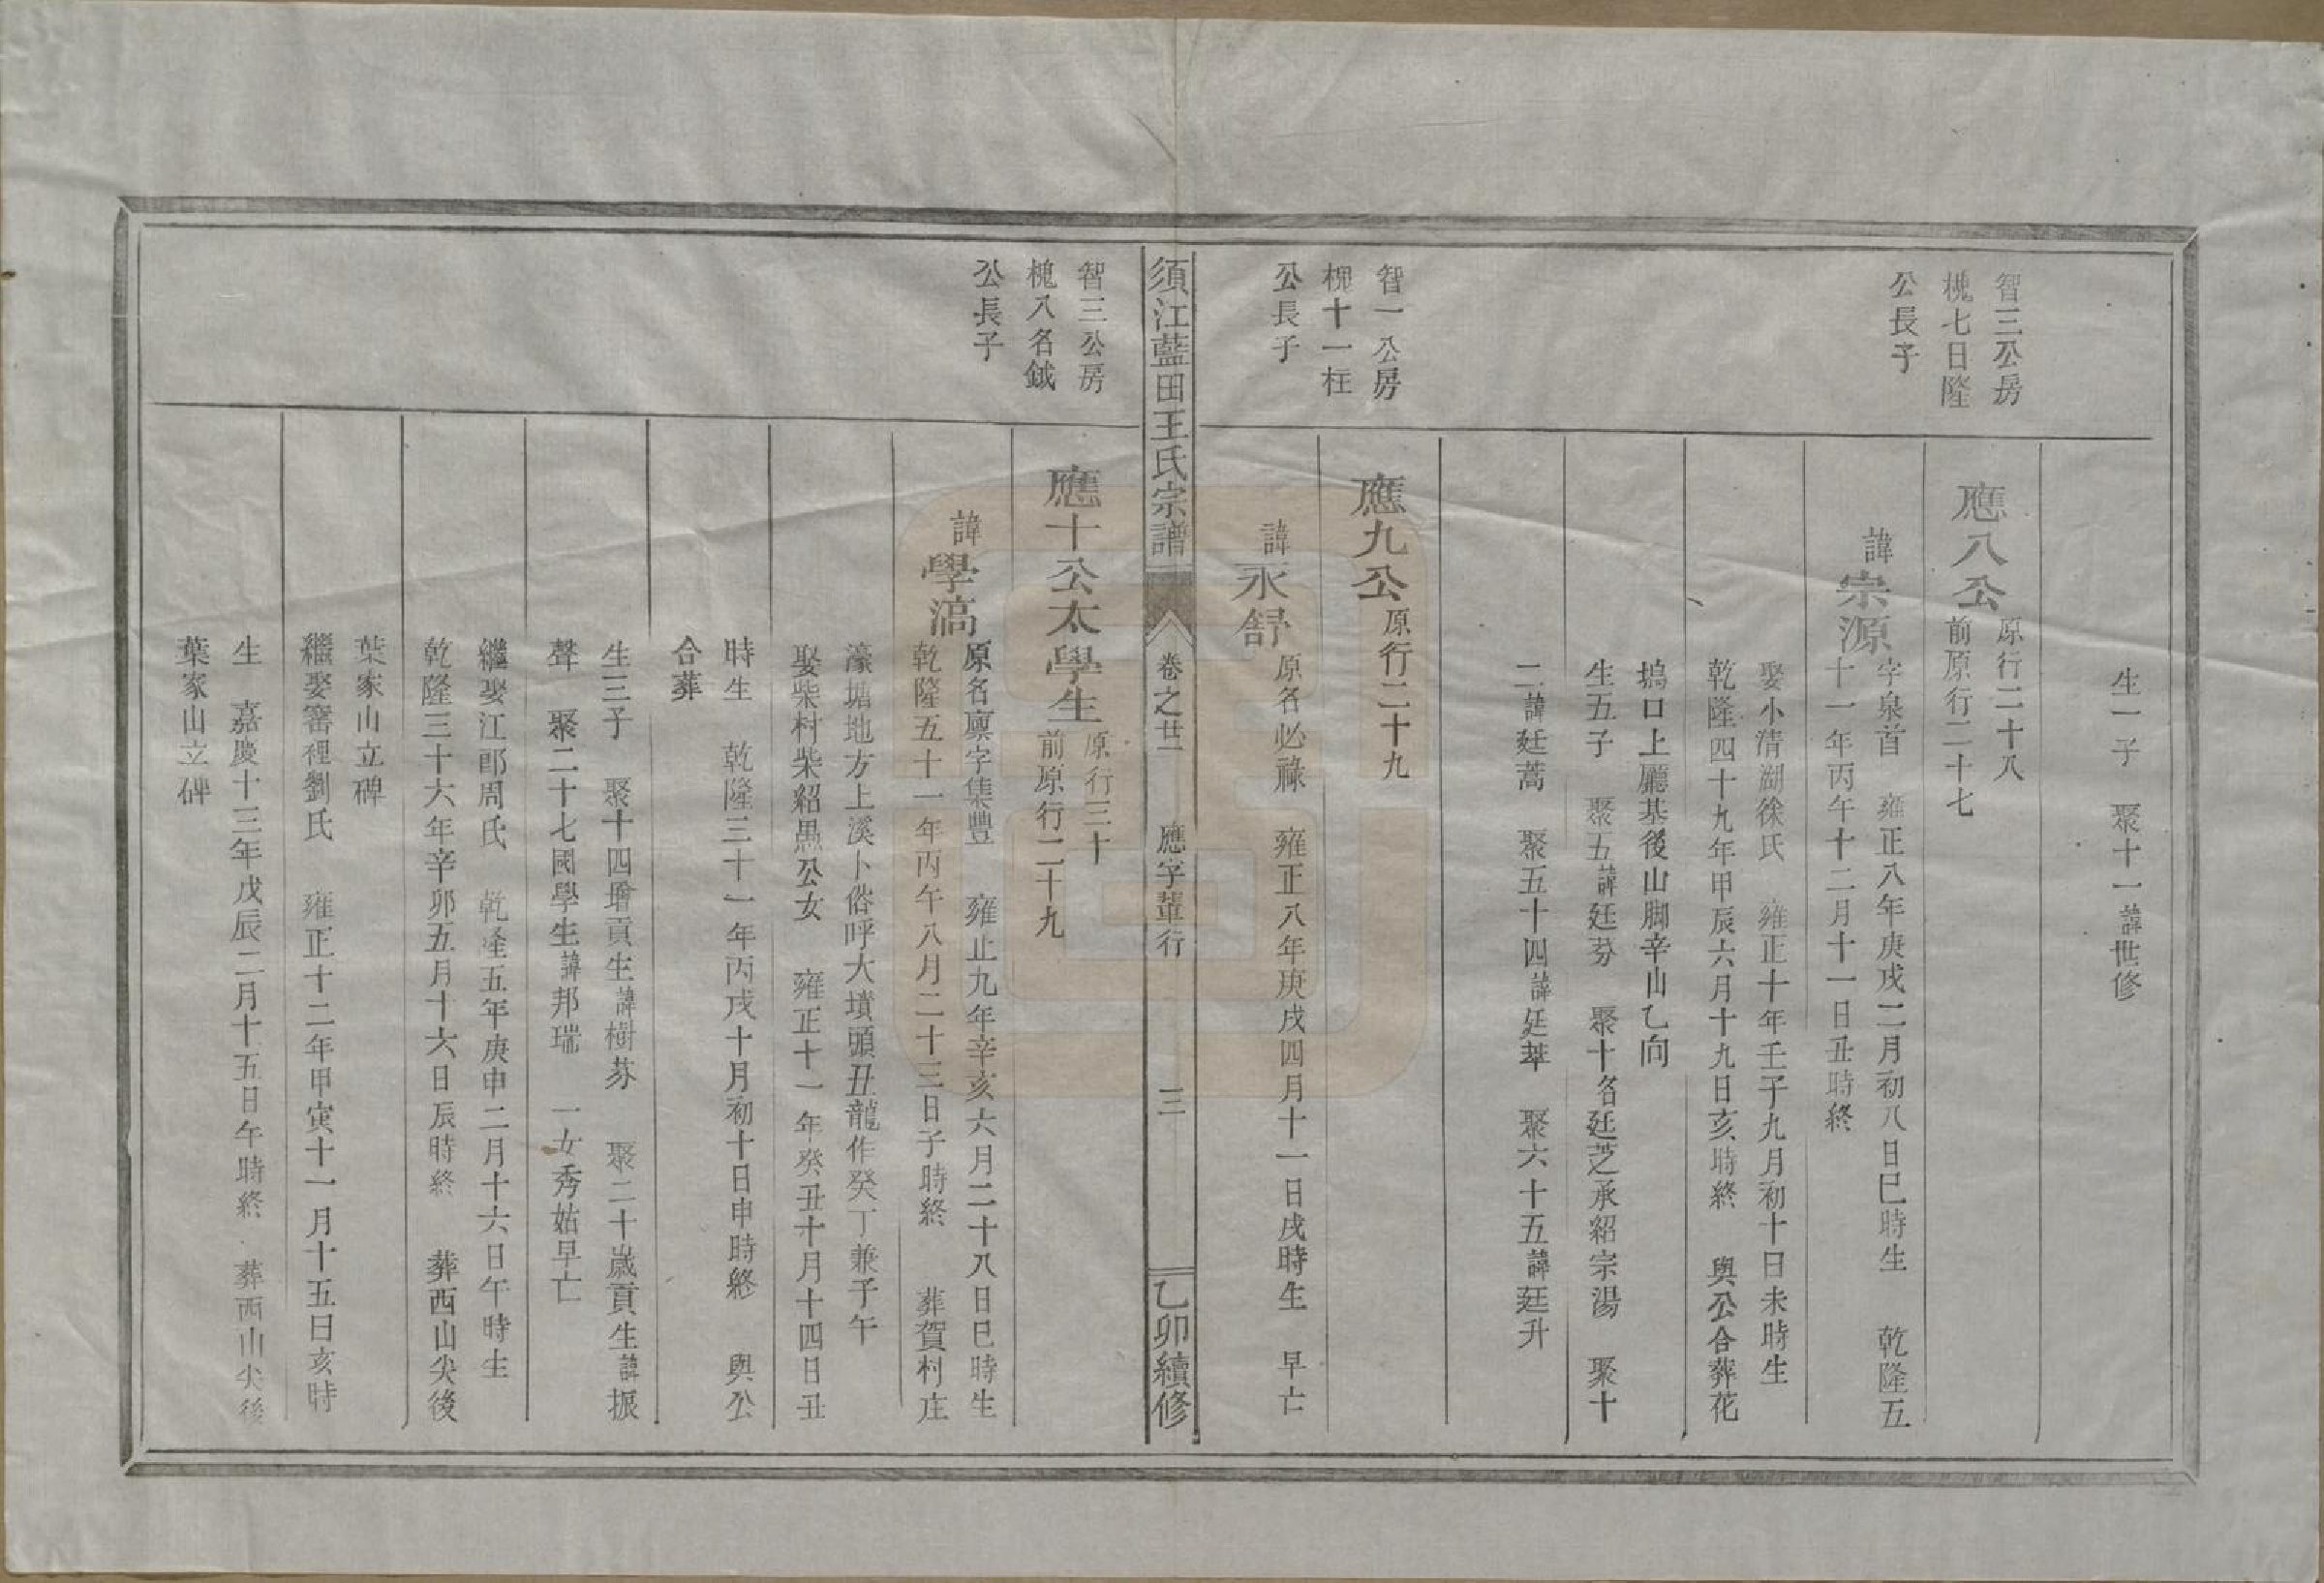 生一子　聚十一諱世修
智三公房
槐七日隆
公長子
應八公
原行二十八
前原行二十七
諱宗源
字泉首　雍正八年庚戌二月初八日巳時生　乾隆五
十一年丙午十二月十一日丑時終
娶小清湖徐氏　雍正十年壬子九月初十日未時生
乾隆四十九年甲辰六月十九日亥時終　與公合葬花
塢口上廳基後山脚辛山乙向
生五子　聚五諱廷芬　聚十名廷芝承紹宗湯　聚十
二諱廷蒿　聚五十四諱廷萃　聚六十五諱廷升
智一公房
槐十一枉
公長子
應九公
原行二十九
諱永舒
原名必祿　雍正八年庚戌四月十一日戌時生　早亡
須江藍田王氏宗譜
卷之廿一
應字輩行
三
乙卯續修
智三公房
槐八名鉞
公長子
應十公太學生
原行三十
前原行二十九
諱學滈
原名廩字集豐　雍正九年辛亥六月二十八日巳時生
乾隆五十一年丙午八月二十三日子時終　葬賀村庄
濠塘地方上溪卜俗呼大墳頭丑龍作癸丁兼子午
娶柴村柴紹凲公女　雍正十一年癸丑十月十四日丑
時生　乾隆三十一年丙戌十月初十日申時終　與公
合葬
生三子　聚十四增貢生諱樹芬　聚二十歲貢生諱振
聲　聚二十七國學生諱邦瑞　一女秀姑早亡
繼娶江郎周氏　乾隆五年庚申二月十六日午時生
乾隆三十六年辛卯五月十六日辰時終　葬西山尖後
葉家山立碑
繼娶窰裡劉氏　雍正十二年甲寅十一月十五日亥時
生　嘉慶十三年戊辰二月十五日午時終　葬西山尖後
葉家山立碑